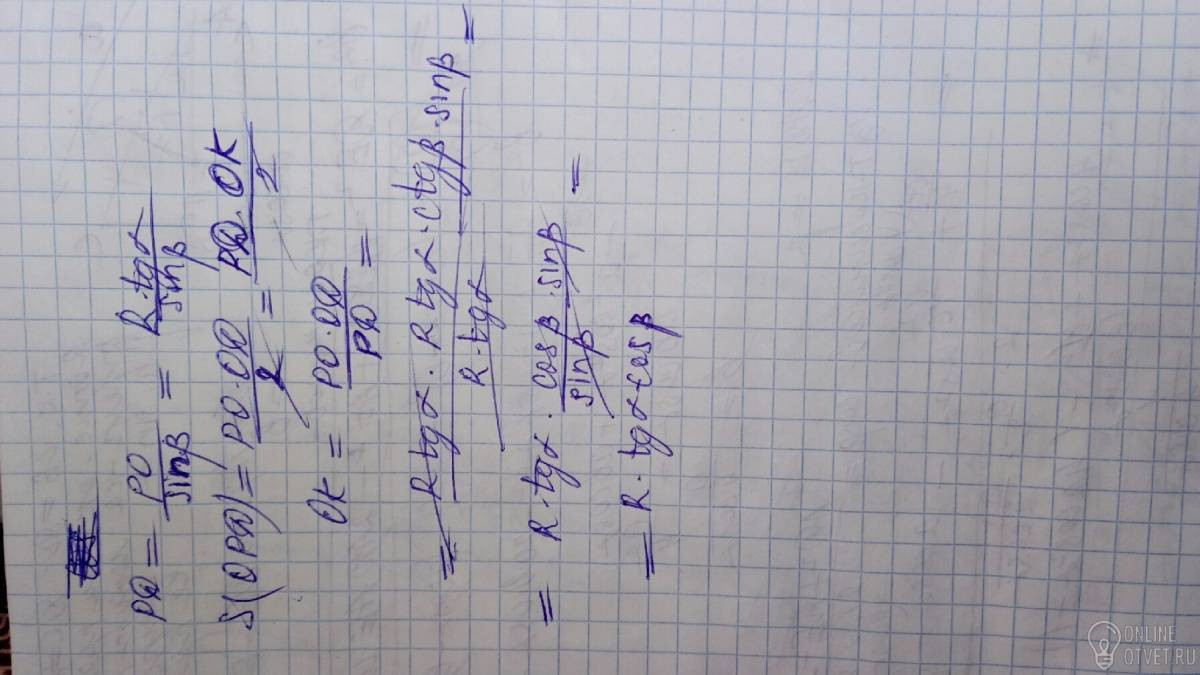 PQ = PO/sinβ = R·tgα/sinβ
S(OPQ) = PO·OQ/2 = PQ·OK/2
OK = PO·OQ/PQ =
= Rtgα·Rtgα·ctgβ·sinβ/R·tgα =
= R·tgα·cosβ·sinβ/sinβ =
= R·tgα·cosβ
ONLINE
OTVET.RU